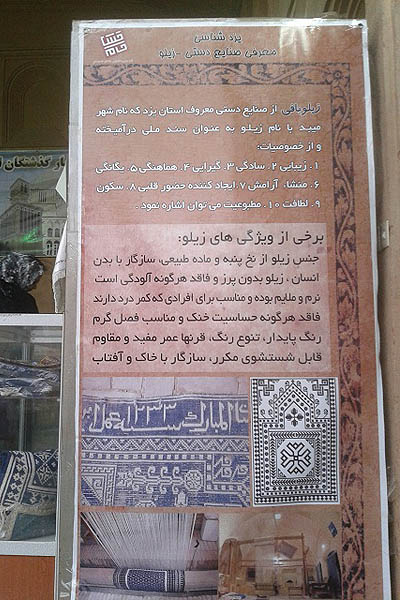 خشت خام
یزد شناسی
معرفی صنایع دستی - زیلو
زیلوبافی از صنایع دستی معروف استان یزد که نام شهر
میبد با نام زیلو به عنوان سند ملی درآمیخته
و از خصوصیات:
۱. زیبایی ۲. سادگی ۳. گیرایی ۴. هماهنگی ۵. یگانگی
۶. منشاء آرامش ۷. ایجاد کننده حضور قلبی ۸. سکون
۹. لطافت ۱۰. مطبوعیت می توان اشاره نمود.
برخی از ویژگی های زیلو:
جنس زیلو از نخ پنبه و ماده طبیعی، سازگار با بدن
انسان، زیلو بدون پرز و فاقد هرگونه آلودگی است
نرم و ملایم بوده و مناسب برای افرادی که کمر درد دارند
فاقد هرگونه حساسیت خنک و مناسب فصل گرم
رنگ پایدار، تنوع رنگ، قرنها عمر مفید و مقاوم
قابل شستشوی مکرر، سازگار با خاک و آفتاب
المبارک سنه ۱۲۳۳